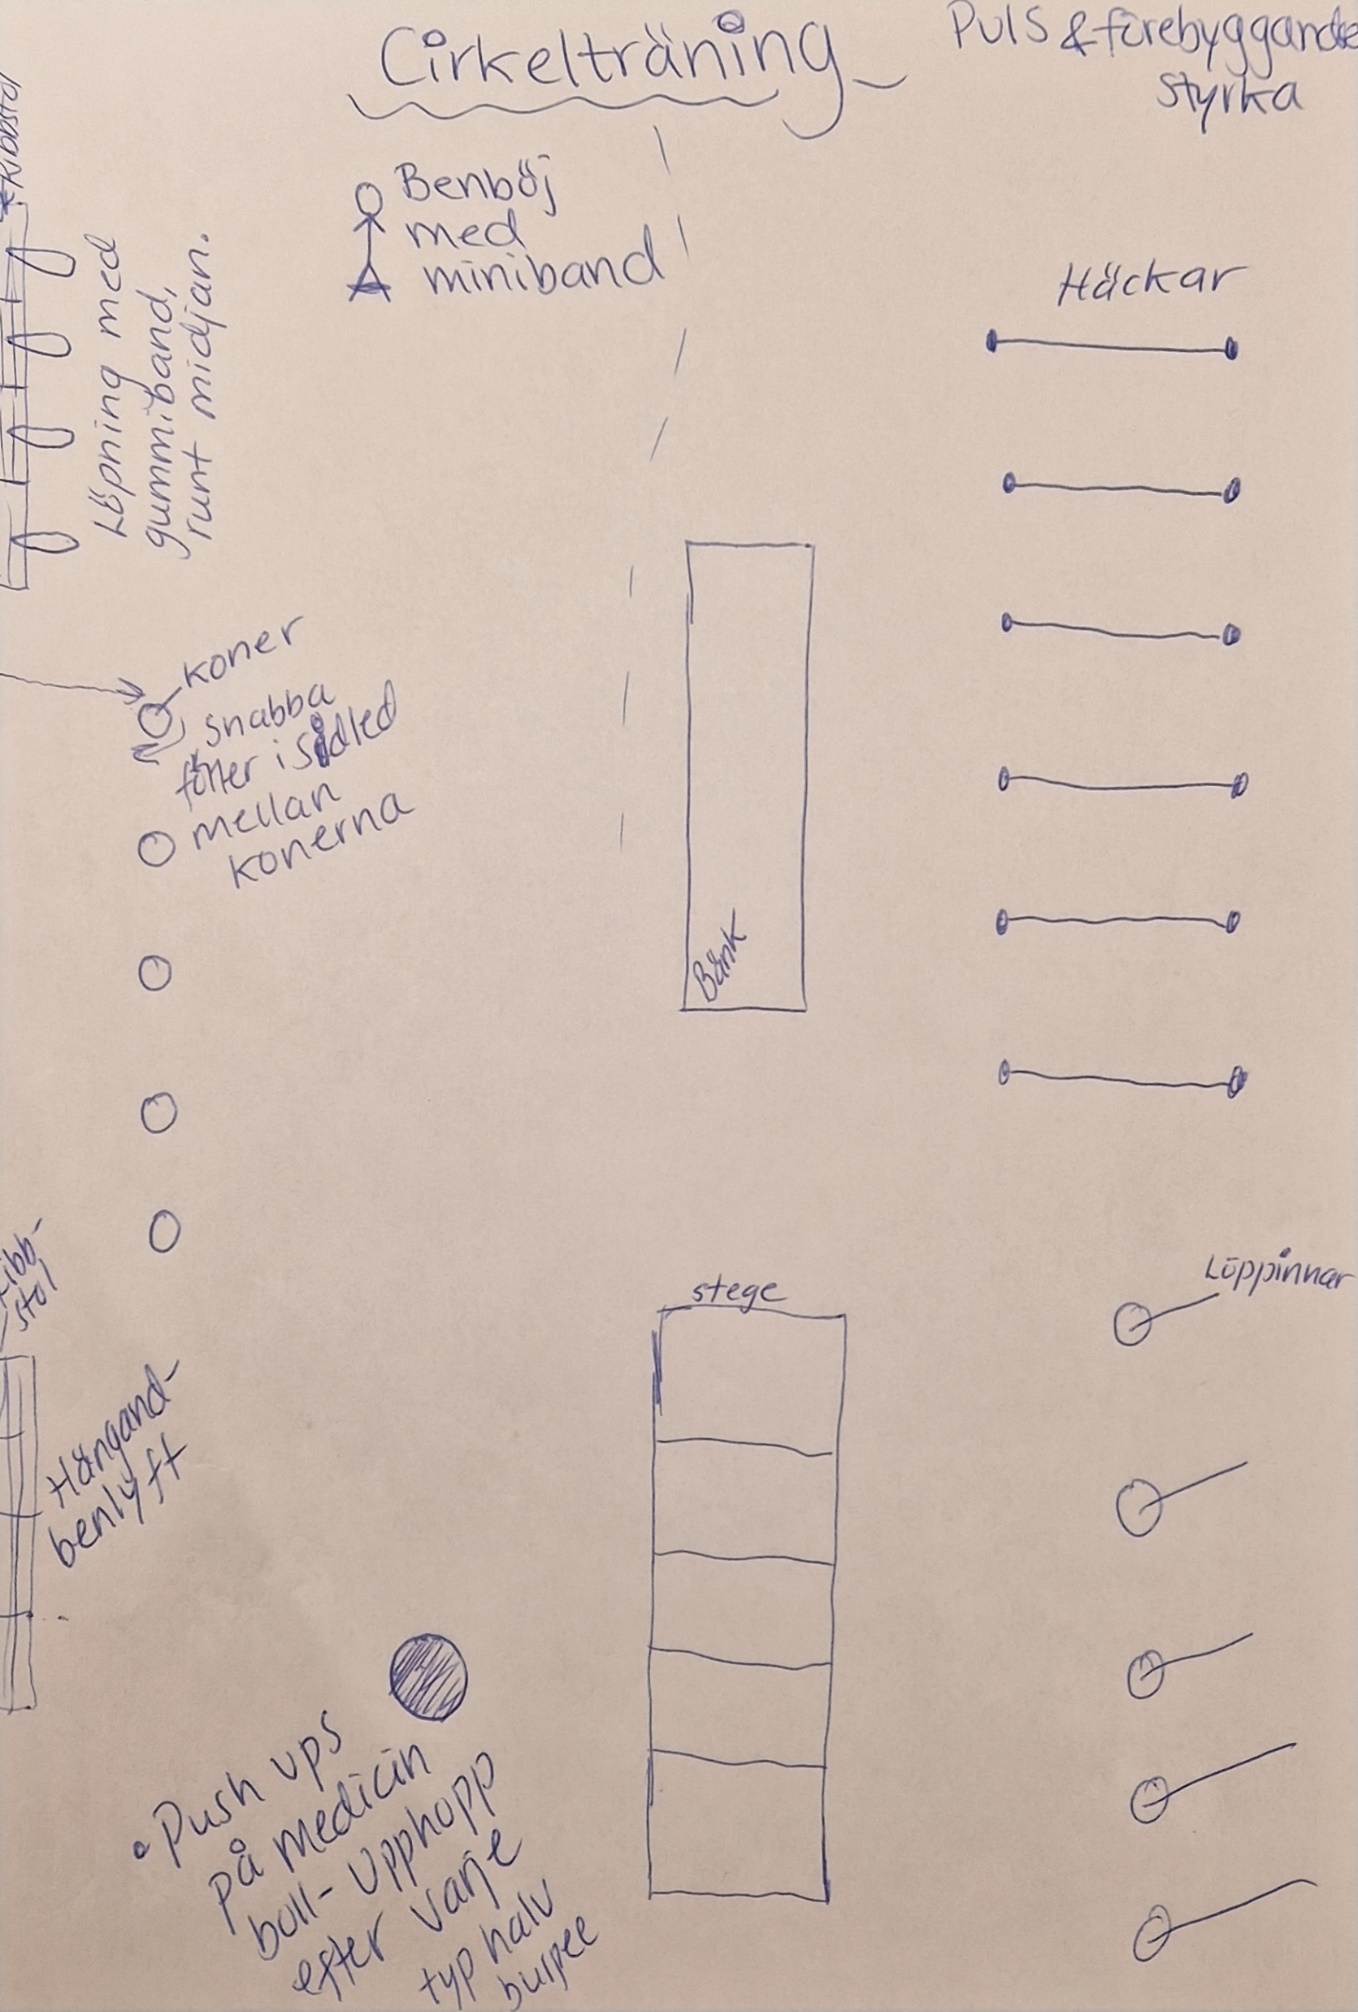 Cirkelträning
Puls & förebyggande
styrka
Ribbstol
Benböj
med
miniband
Löpning med
gummiband,
runt midjan.
Häckar
koner
snabba
fötter i sidled
mellan
konerna
Bänk
Ribb-
stol
Hängand-
benlyft
stege
Löppinnar
• Push ups
på medicin
boll- Upphopp
efter varje
typ halv
burpee